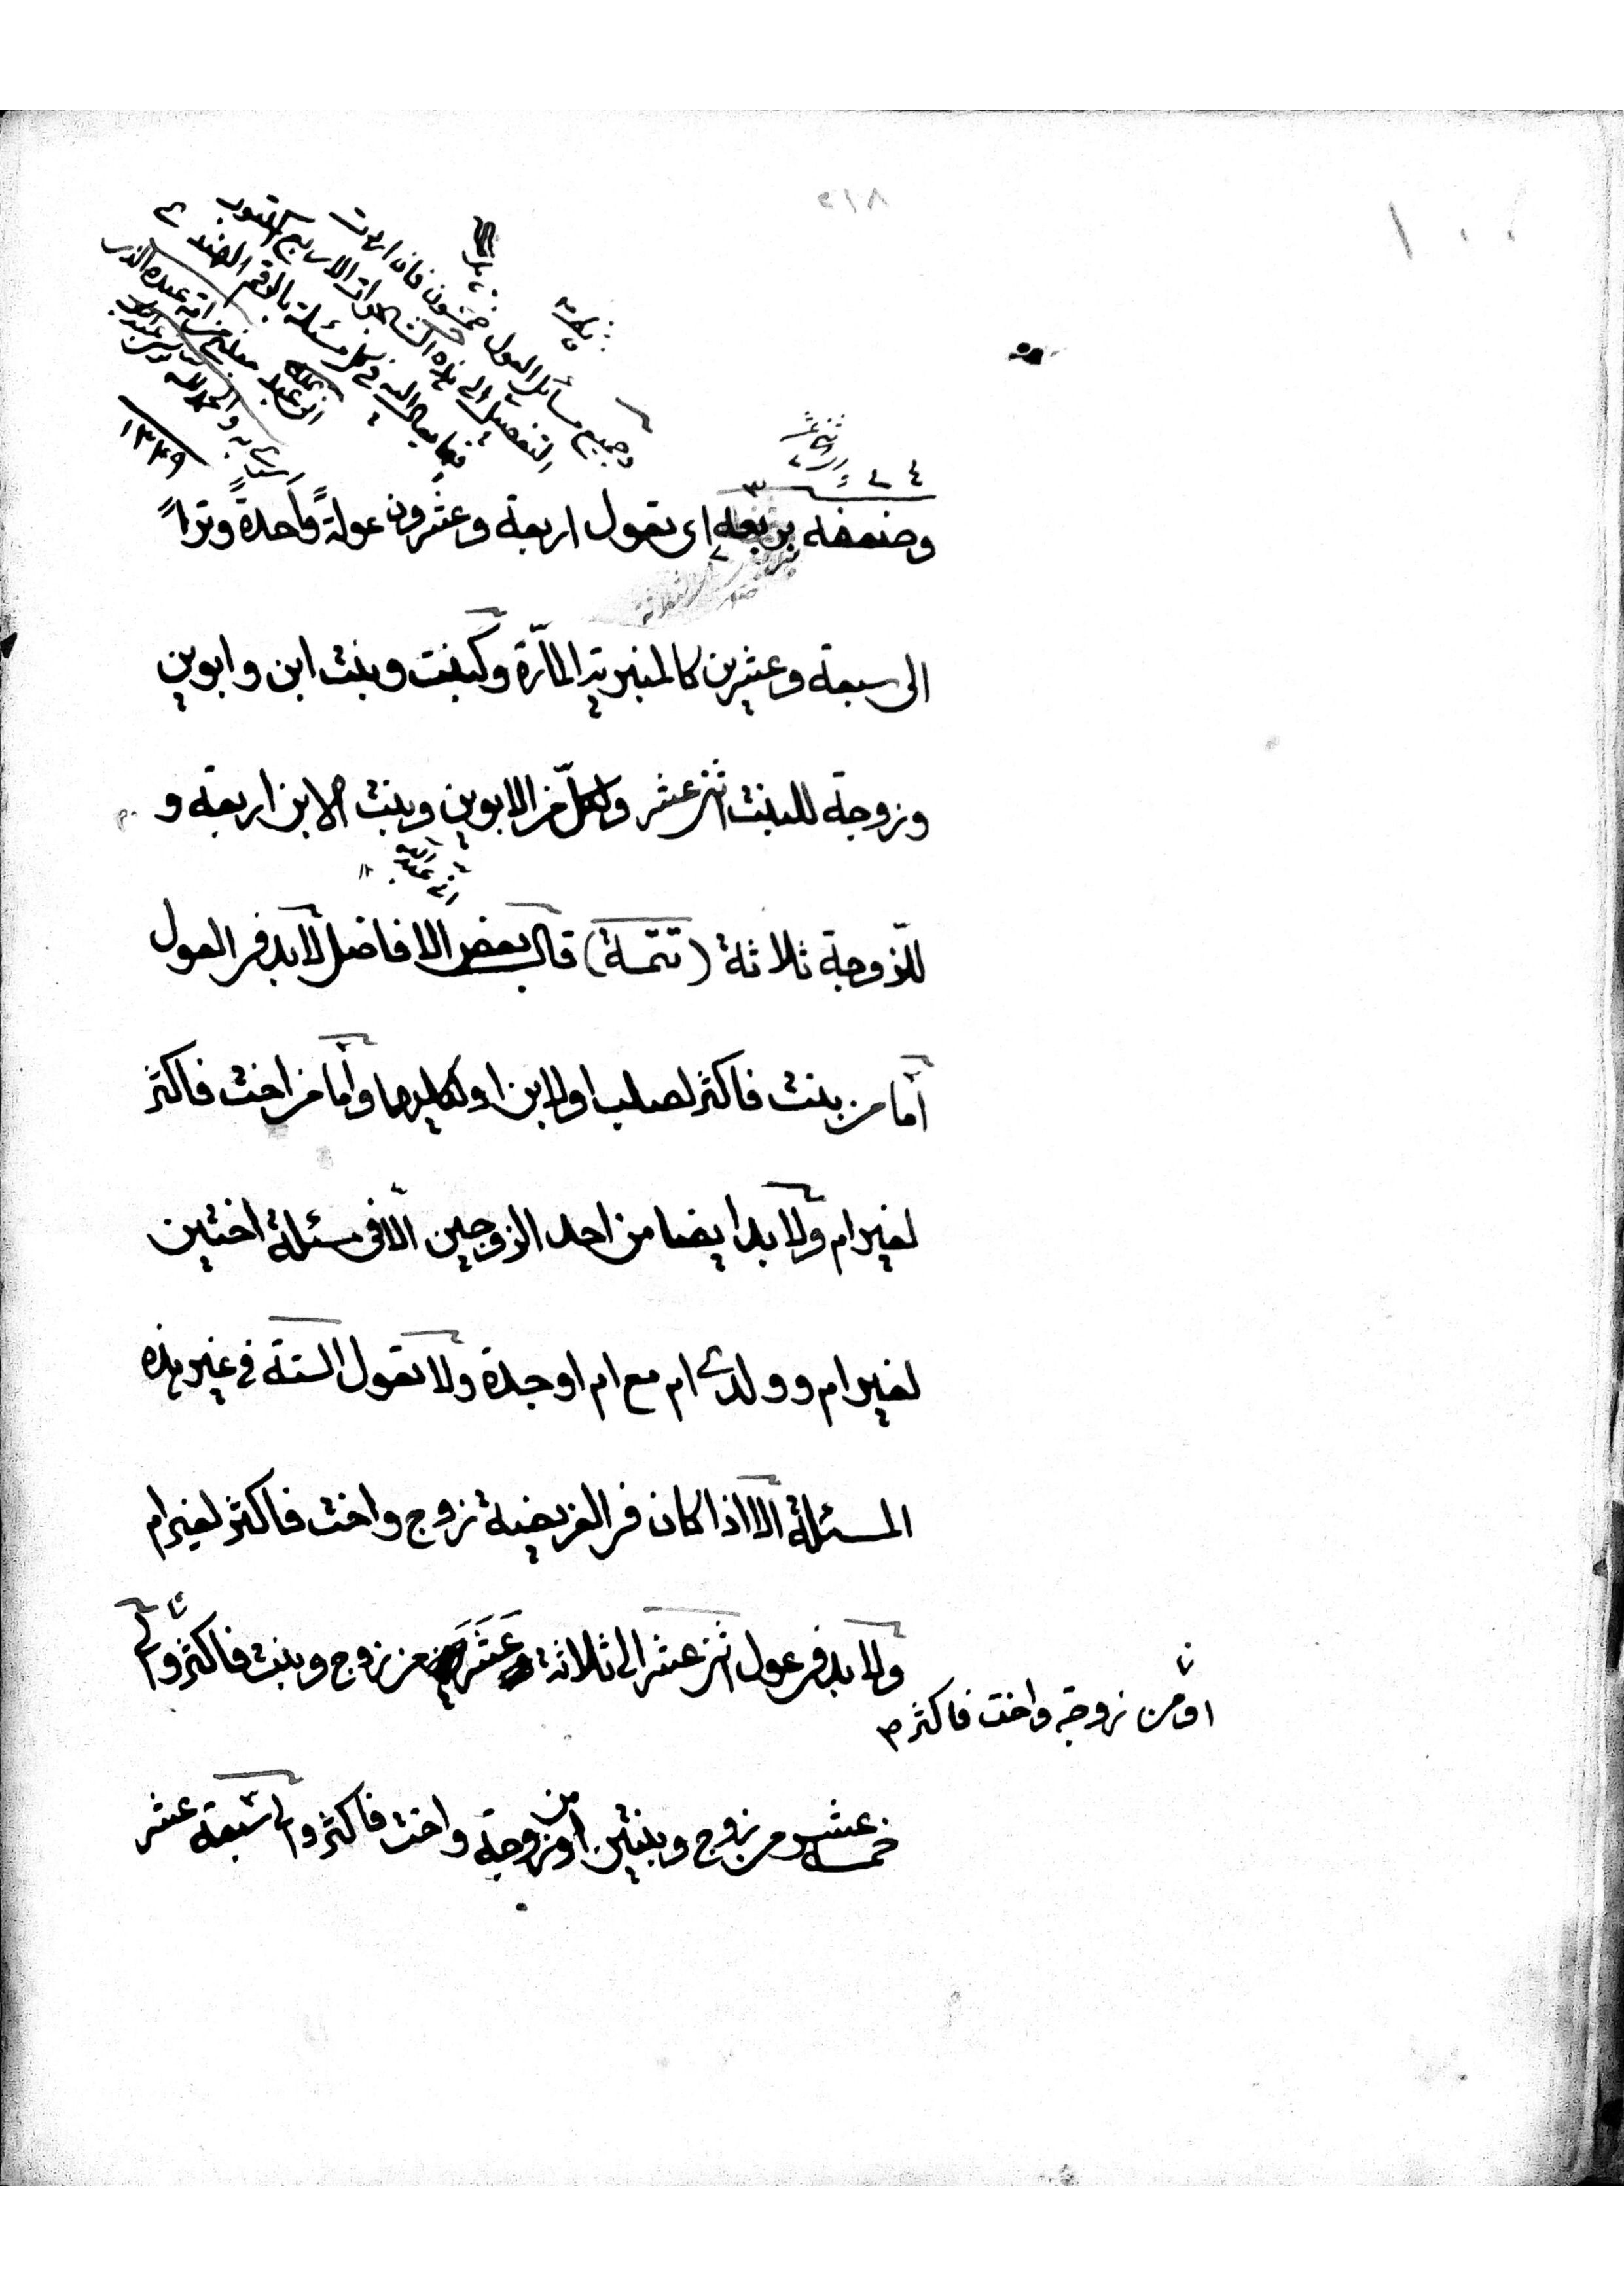 ٢١٨
وجميع مسائل العول خمسون فان اردت
التفصيل الى هذه
في كل مسئلة بالرقم الهندي
١٣٤٩
٢٤
وضعفه بربعه اى تعول اربعة وعشرون عولةً واحدةً وتراً
الى سبعة وعشرين كالمنبرية المارّة وكبنت وبنت ابن وابوين
وزوجة للبنت اثنى عشر ولكلّ من الابوين وبنت الابن اربعة و
للزوجة ثلاثة (تتمة) قال بعض الافاضل لابد فى العول
امّا من بنت فاكثر لصلب او لابن او لكليهما وامّا من اخت فاكثر
لغير ام ولا بد ايضا من احد الزوجين الّا فى مسئلة اختين
لغير ام وولدى ام مع ام او جدة ولا تعول الستة فى غير هذه
المسئلة الا اذا كان فى الفريضة زوج واخت فاكثر لغير ام
ولا بد فى عول اثنى عشر الى ثلاثة عَشَرَ من زوج وبنت فاكثر والى
او من زوجة واخت فاكثر م
خمسة عشر من زوج وبنتين او من زوجة واخت فاكثر والى سبعة عشر